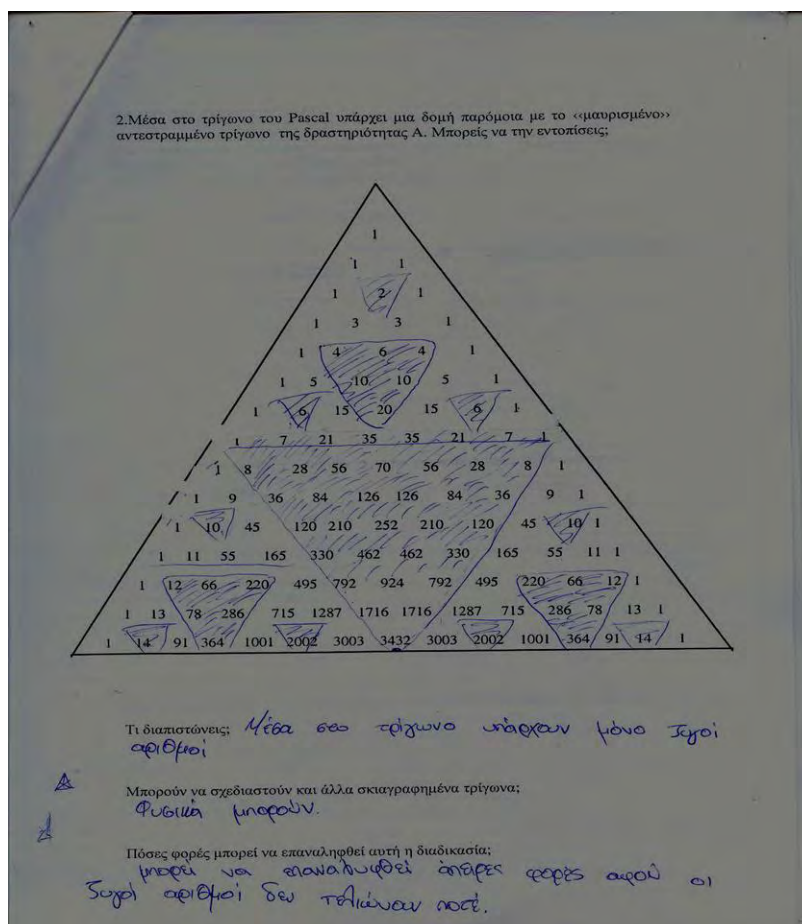 2.Μέσα στο τρίγωνο του Pascal υπάρχει μια δομή παρόμοια με το ‹‹μαυρισμένο››
αντεστραμμένο τρίγωνο της δραστηριότητας Α. Μπορείς να την εντοπίσεις;
1
1 1
1 2 1
1 3 3 1
1 4 6 4 1
1 5 10 10 5 1
1 6 15 20 15 6 1
1 7 21 35 35 21 7 1
1 8 28 56 70 56 28 8 1
1 9 36 84 126 126 84 36 9 1
1 10 45 120 210 252 210 120 45 10 1
1 11 55 165 330 462 462 330 165 55 11 1
1 12 66 220 495 792 924 792 495 220 66 12 1
1 13 78 286 715 1287 1716 1716 1287 715 286 78 13 1
1 14 91 364 1001 2002 3003 3432 3003 2002 1001 364 91 14 1
Τι διαπιστώνεις; Μέσα στο τρίγωνο υπάρχουν μόνο ζυγοί
αριθμοί
Μπορούν να σχεδιαστούν και άλλα σκιαγραφημένα τρίγωνα;
Φυσικά μπορούν.
Πόσες φορές μπορεί να επαναληφθεί αυτή η διαδικασία;
μπορεί να επαναληφθεί άπειρες φορές αφού οι
ζυγοί αριθμοί δεν τελιώνουν ποτέ.